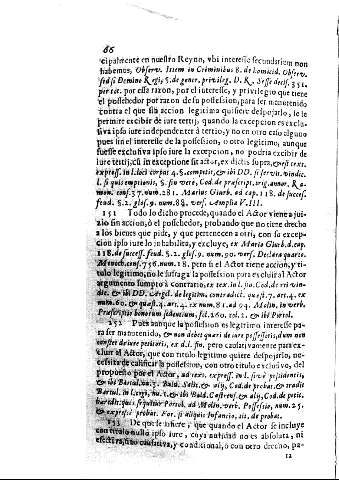 66
cipalmente en nuestro Reyno, vbi interesse secundarium non
habemus, Observ. Item in Criminibus 8. de homicid. Observ.
sed si Domino Regi, 5. de gener. privileg. D. R. Sesse decis. 351.
per tot. por esta razon, por el interesse, y privilegio que tiene
el possehedor por razon de su possession, para ser manutenido
contra el que sin accion legitima quisiere despojarlo, le
permite excibir de iure tertij, quando la excepcion es exclu-
siva ipso iure independenter à tertio, y no en otro caso alguno
pues sin el interesse de la possession, o otro legitimo, aunque
fuesse exclusiva ipso iure la excepcion, no podria excibir de
iure tertij, cũ in exceptione sit actor, ex dictis supra, & est text.
express. in l. loci corpus 4. §. competit, & ibi DD. si servit. vindic.
l. si quis emptionis, §. sin verò, Cod. de praescript. trig. annor. Ra-
mon. cons. 37. num. 281. Marius Giurb. ad cap. 118. de success.
feud. §. 2. glos. 9. num. 88. vers. Amplia VIII.
151 Todo lo dicho procede, quando el Actor viene a jui-
zio sin acciõ, ò el possehedor, probando que no tiene drecho
a los bienes que pide, y que pertenecen a otri, con su excep-
cion ipso iure lo inhabilita, y excluye, ex Mario Giurb. d. cap.
118. de success. feud. §. 2. glos. 9. num. 90. vers. Declara quarto.
Menoch. cons. 756. num. 18. pero si el Actor tiene accion, y ti-
tulo legitimo, no le sufraga la possession para excluir al Actor
argumento sumpto à contrario, ex tex. in l. fin. Cod. de rei vin-
dic. & ibi DD. Angel. de legitim. contradict. quaest. 7. art. 4. ex
num. 60. & quaest. 4. art. 4. ex num. 81. ad 94. Molin. in verb.
Praescriptio bonorum sedentium, fol. 260. col. 2. & ibi Portol.
152 Pues aunque la possession es legitimo interesse pa-
ra ser manutenido, & non debet quaeri de iure possessoris, dum non
constet de iure petitoris, ex d. l. fin. pero cautativamente para ex-
cluir al Actor, que con titulo legitimo quiere despojarlo, ne-
cessita de calificar la possession, con titulo exclusivo, del
propuesto por el Actor, ad text. express. in l. sive possidentis,
& ibi Bartul. nu. 5. Bald. Salic. & alij, Cod. de probat. & tradit
Bartul. in l. ergi, nu. 1. & ibi Bald. Castrens. & alij, Cod. de petit.
haredit. quos sequitur Portol. ad Molin. verb. Possessio, num. 25.
& expressè probat. For. si aliquis Infancio, tit. de probat.
153 De que se infiere, que quando el Actor se incluye
con titulo nullo ipso iure, cuya nulidad no es absoluta, ni
efectiva, sino causativa, y condicional, ò con otro drecho, pa-
12